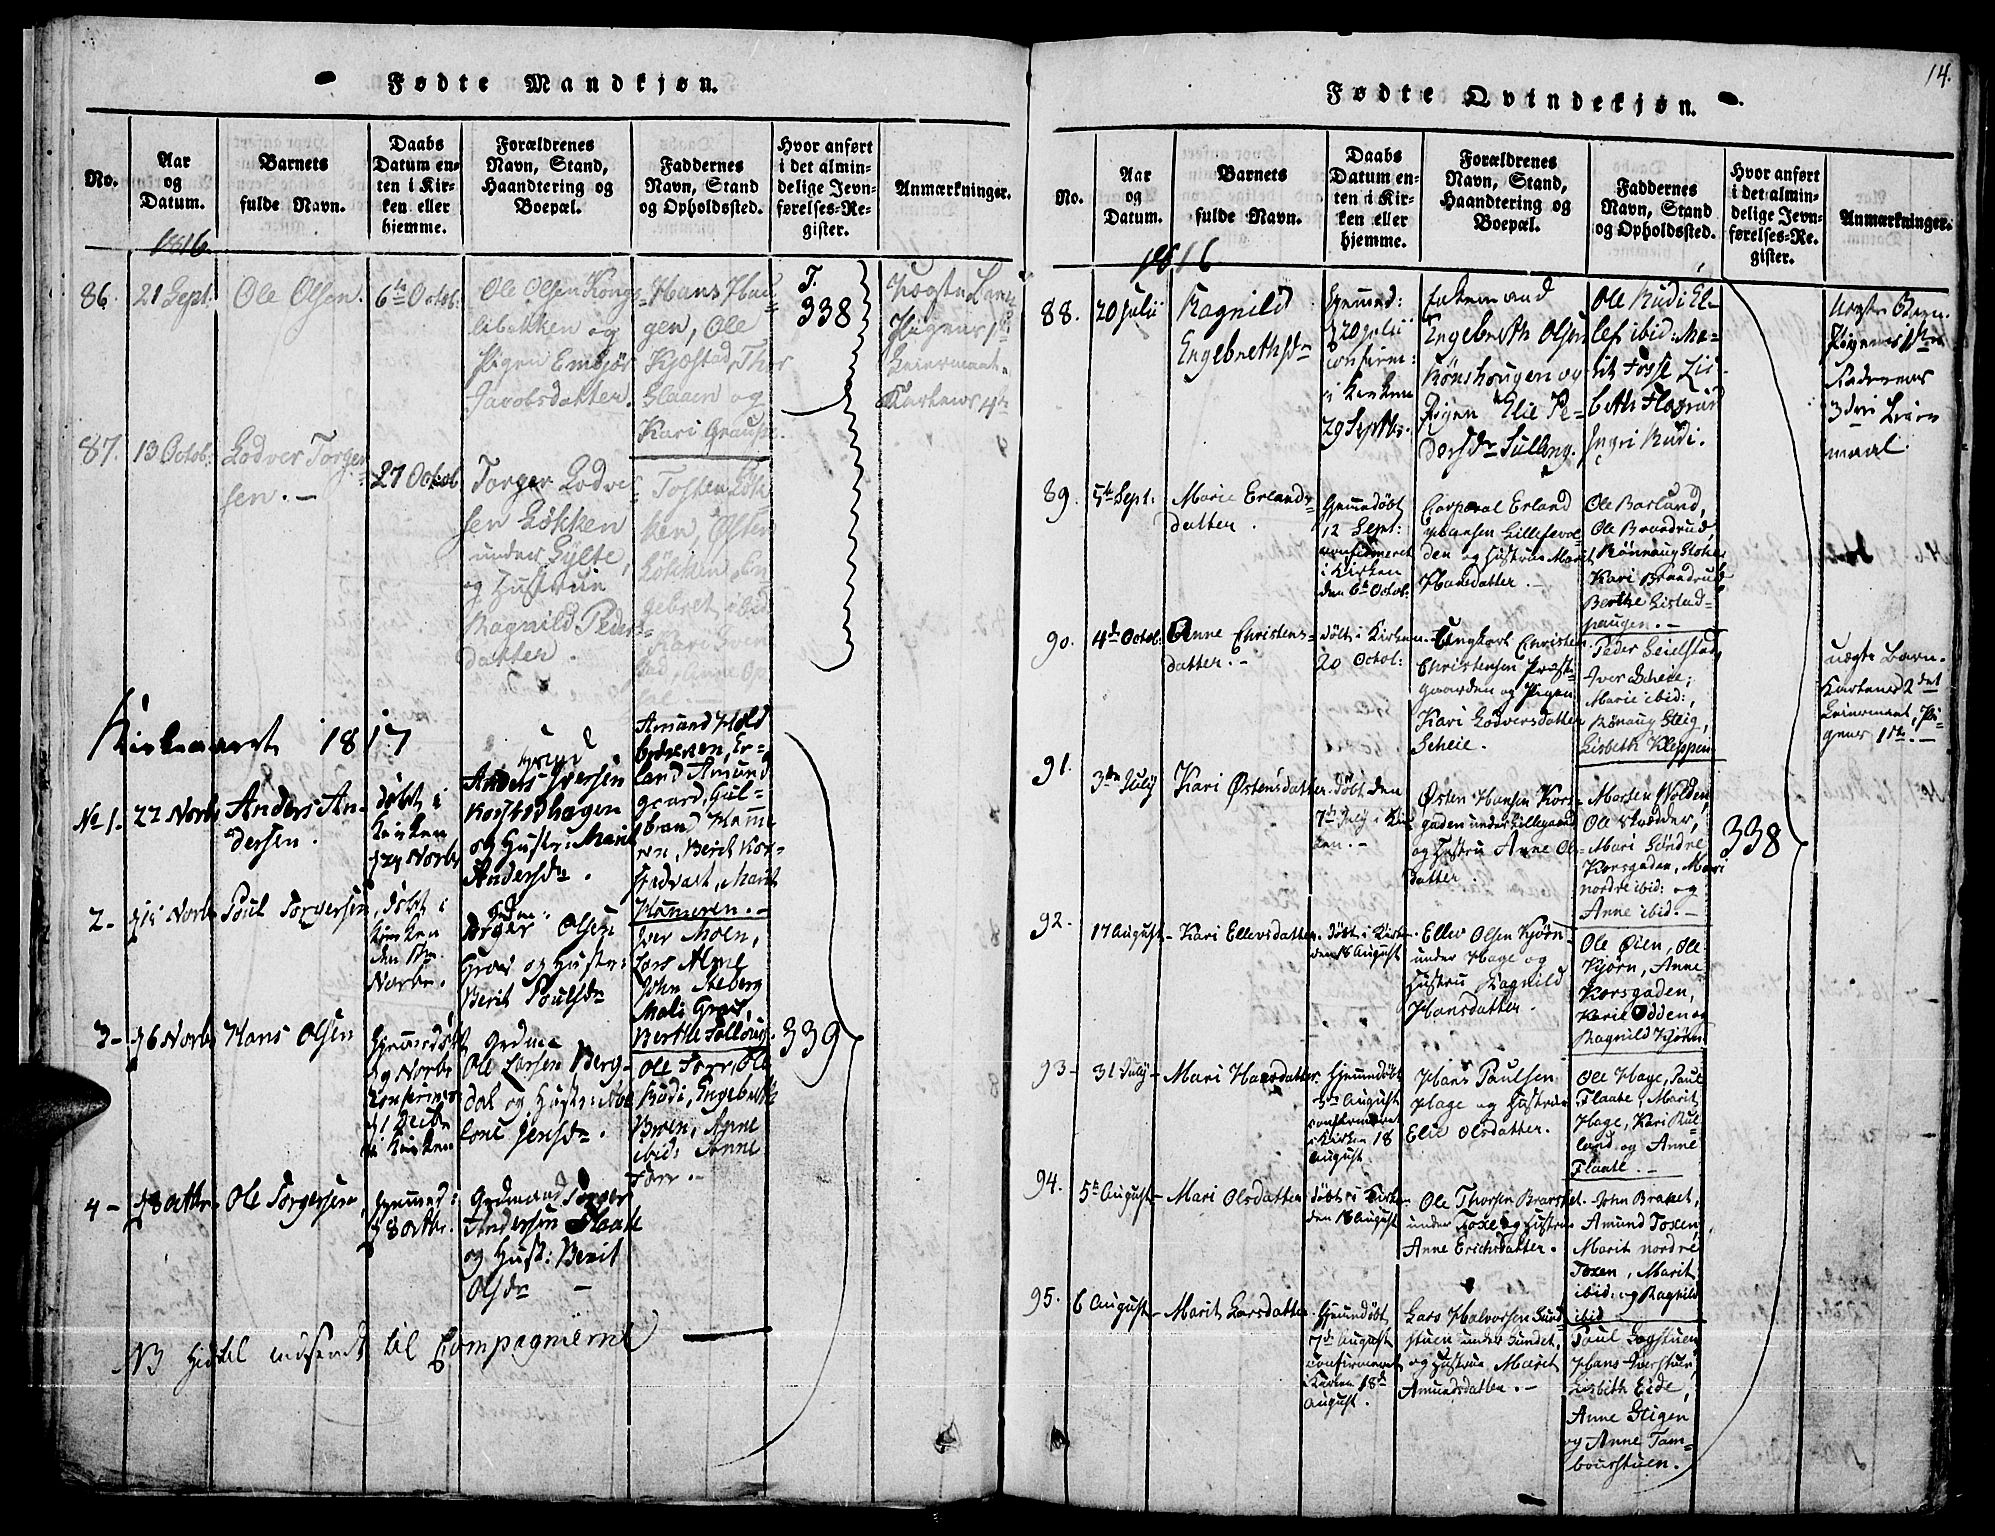 Fødte Mandkjøn.
No.
Aar
og
Datum.
Barnets
fulde Navn.
Daabs
Datum en-
ten i Kir-
ken eller
hjemme.
Forældrenes
Navn, Stand,
Haandtering og
Boepæl.
Faddernes
Navn, Stand
og Opholdssted.
Hvor anført
i det almin-
delige Jevn-
førelses-Re-
gister.
Anmærkninger.
1816
86.
21 Sept.
Ole Olsen.
6te Octob.
Ole Olsen Kongs-
libakken og
Pigen Embjør
Jacobsdatter.
Hans Hau-
gen, Ole
Kjæstad, Thor
Slaaen og
Kari Graupe.
T.
338
Uægte Barn
Pigens 1te
Leiermaal.
Karlens 4te
87.
13 Octob.
Lodver Torger-
sen. —
27 Octob.
Torger Lodve-
sen Løkken
under Sylte,
og Hustrue
Ragnild Peders-
datter.
Tosten Løk-
ken, Østen
Løkken, En-
gebret ibid
Kirkeaaret 1817
No 1.
22 Novbr
Anders An-
dersen.
døbt i
Kirken
d 24 Novbr
Anders Iversen
Korstvdhagen
og Hustr: Marit
Andersdr.
Amund Hold
Er-
land Amund
gaard, Gul-
brand Hame
ren, Berit Kor-
Marit
Hameren. —
2 -
d 15 Novbr
Poul Torgersen,
døbt i
Kirken
den
Novbr.
Torger Olsen
Grav og Hustr:
Berit Poulsdr
Iver Moen,
Lars Alme
John Steberg
Mali Grav,
Berthe
3 -
d 6 Novbr
Hans Olsen
Hjemmedøbt
d 9 Novbr
Confirmr
d 1 Decbr
i Kirken
Ole Larsen Berg-
dal og Hustr:
Jensdr.
Ole Forr, Ole
Rudi, Engebreth
Broen, Anne
ibid: Anne
Forr. —
339
4 -
d 8 Octbr
Ole Torgersen,
Hjemmed:
d 8 octbr.
Gaardmand Torger
Andersen Flaate
og Hust: Berit
Olsdr —
NB Hidtil indsendt til Compagnierne —
14.
Fødte Qvindekjøn.
No.
Aar
og
Datum.
Barnets
fulde Navn.
Daabs
Datum en-
ten i Kir-
ken eller
hjemme.
Forældrenes
Navn, Stand,
Haandtering og
Boepæl.
Faddernes
Navn, Stand
og Opholdssted.
Hvor anført
i det almin-
delige Jevn-
førelses-Re-
gister.
Anmærkninger.
1816
88.
20 Julii
Ragnild
Engebrethsdr
Hjemmed:
d 20 Julii
confirm:
i Kirken
29 Septbr.
Engebreth Olsen
Rønshougen og
Pigen Elie Pe-
dersdr Sulleng.
Ole Rudi El-
lef ibid: Ma-
rit Fosse Lis-
beth Flaarud
Ingri Rudi.
Uægte Barn.
Pigens 1te
Faderens
3die Leier
maal.
89.
5te Sept:
Marie Erlands-
datter.
Hjemmedøbt
12 Sept:
confirmeret
i Kirken
den 6te Octob:
Corporal Erland
Johansen Lillefevol-
den og Hustrue Marit
Hansdatter. —
Ole Barlund,
Ole Brandrud,
Rønnaug Stoker
Kari Brandrud
Berthe Listad-
haugen. —
90.
4de Octob.
Anne Christens-
datter. —
døbt i Kirken
20 Octob:
Ungkarl Christen
Christensen Præste-
gaarden og Pigen
Kari Lodversdatter
Scheie.
Peder Leilstad,
Iver Scheie,
Marie ibid:,
Rønnaug Steig,
Lisbeth Kleppen
uægte Barn.
Karlens 2det
Leiermaal, Pi-
gens 1te. —
91.
3die July
Kari Østensdatter.
døbt den
7de July i Kir-
ken. —
Østen Hansen Kors-
gaden under Lillegaard
og Hustru Anne Ols-
datter.
Morten Volden,
Ole Skrædder,
Mari Søndre
Korsgaden, Mari
nordre ibid: og
Anne ibid. —
338
92.
17 August
Kari Ellevsdatter.
døbt i Kirken
den 18 August
Ellev Olsen Kjørn
under Hage og
Hustru Ragnild
Hansdatter.
Ole Øien, Ole
Kjørn, Anne
Korsgaden,
Karie Odden og
Ragnild Kjørn
93 -
31 July
Mari Hansdatter
Hjemmedøbt
5te August
confirmeret
i Kirken 18
August.
Hans Paulsen
Hage og Hustrue
Elie Olsdatter.
Ole Hage, Paul
Flaate, Marit
Hage, Kari Rul-
land og Anne
Flaate. —
94.
5te August
Mari Olsdatter
døbt i Kirken
den 18 August
Ole Thorsen Brarket
under Toxe og Hustrue
Anne Erichsdatter.
John Braket,
Amund Toxen,
Marit nordre
Toxen, Marit
ibid: og Ragnild
ibid
95.
6 August
Marit Larsdatter.
Hjemmedøbt
7de August
confirmeret
i Kirken 18de
August.
Lars Halvorsen Sund-
stuen under Sundet,
og Hustrue Marit
Amundsdatter. —
Paul Bogstuen,
Hans Iverstuen,
Lisbeth Eide,
Anne Stigen
og Anne Tam-
boursstuen.